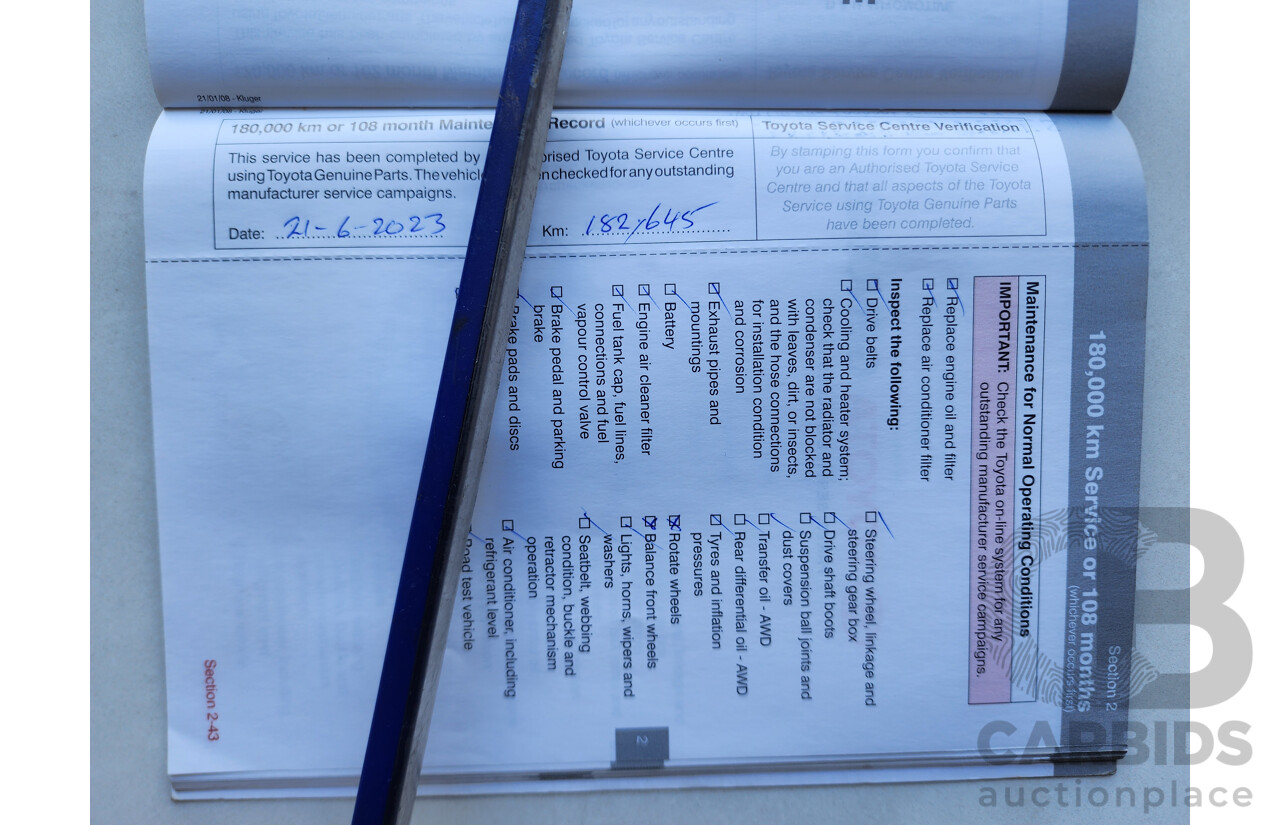 21/01/08 - Kluger
180,000 km or 108 month Mainte Record (whichever occurs first)
This service has been completed by orised Toyota Service Centre
using Toyota Genuine Parts. The vehicle n checked for any outstanding
manufacturer service campaigns.
Date: 21-6-2023 Km: 182,645
Toyota Service Centre Verification
By stamping this form you confirm that
you are an Authorised Toyota Service
Centre and that all aspects of the Toyota
Service using Toyota Genuine Parts
have been completed.
Section 2
180,000 km Service or 108 months
(whichever occurs first)
Maintenance for Normal Operating Conditions
IMPORTANT: Check the Toyota on-line system for any
outstanding manufacturer service campaigns.
Replace engine oil and filter
Replace air conditioner filter
Inspect the following:
Drive belts
Cooling and heater system;
check that the radiator and
condenser are not blocked
with leaves, dirt, or insects,
and the hose connections
for installation condition
and corrosion
Exhaust pipes and
mountings
Battery
Engine air cleaner filter
Fuel tank cap, fuel lines,
connections and fuel
vapour control valve
Brake pedal and parking
brake
Brake pads and discs
Steering wheel, linkage and
steering gear box
Drive shaft boots
Suspension ball joints and
dust covers
Transfer oil - AWD
Rear differential oil - AWD
Tyres and inflation
pressures
Rotate wheels
Balance front wheels
Lights, horns, wipers and
washers
Seatbelt, webbing
condition, buckle and
retractor mechanism
operation
Air conditioner, including
refrigerant level
Road test vehicle
2
Section 2-43
CARBIDS
auctionplace